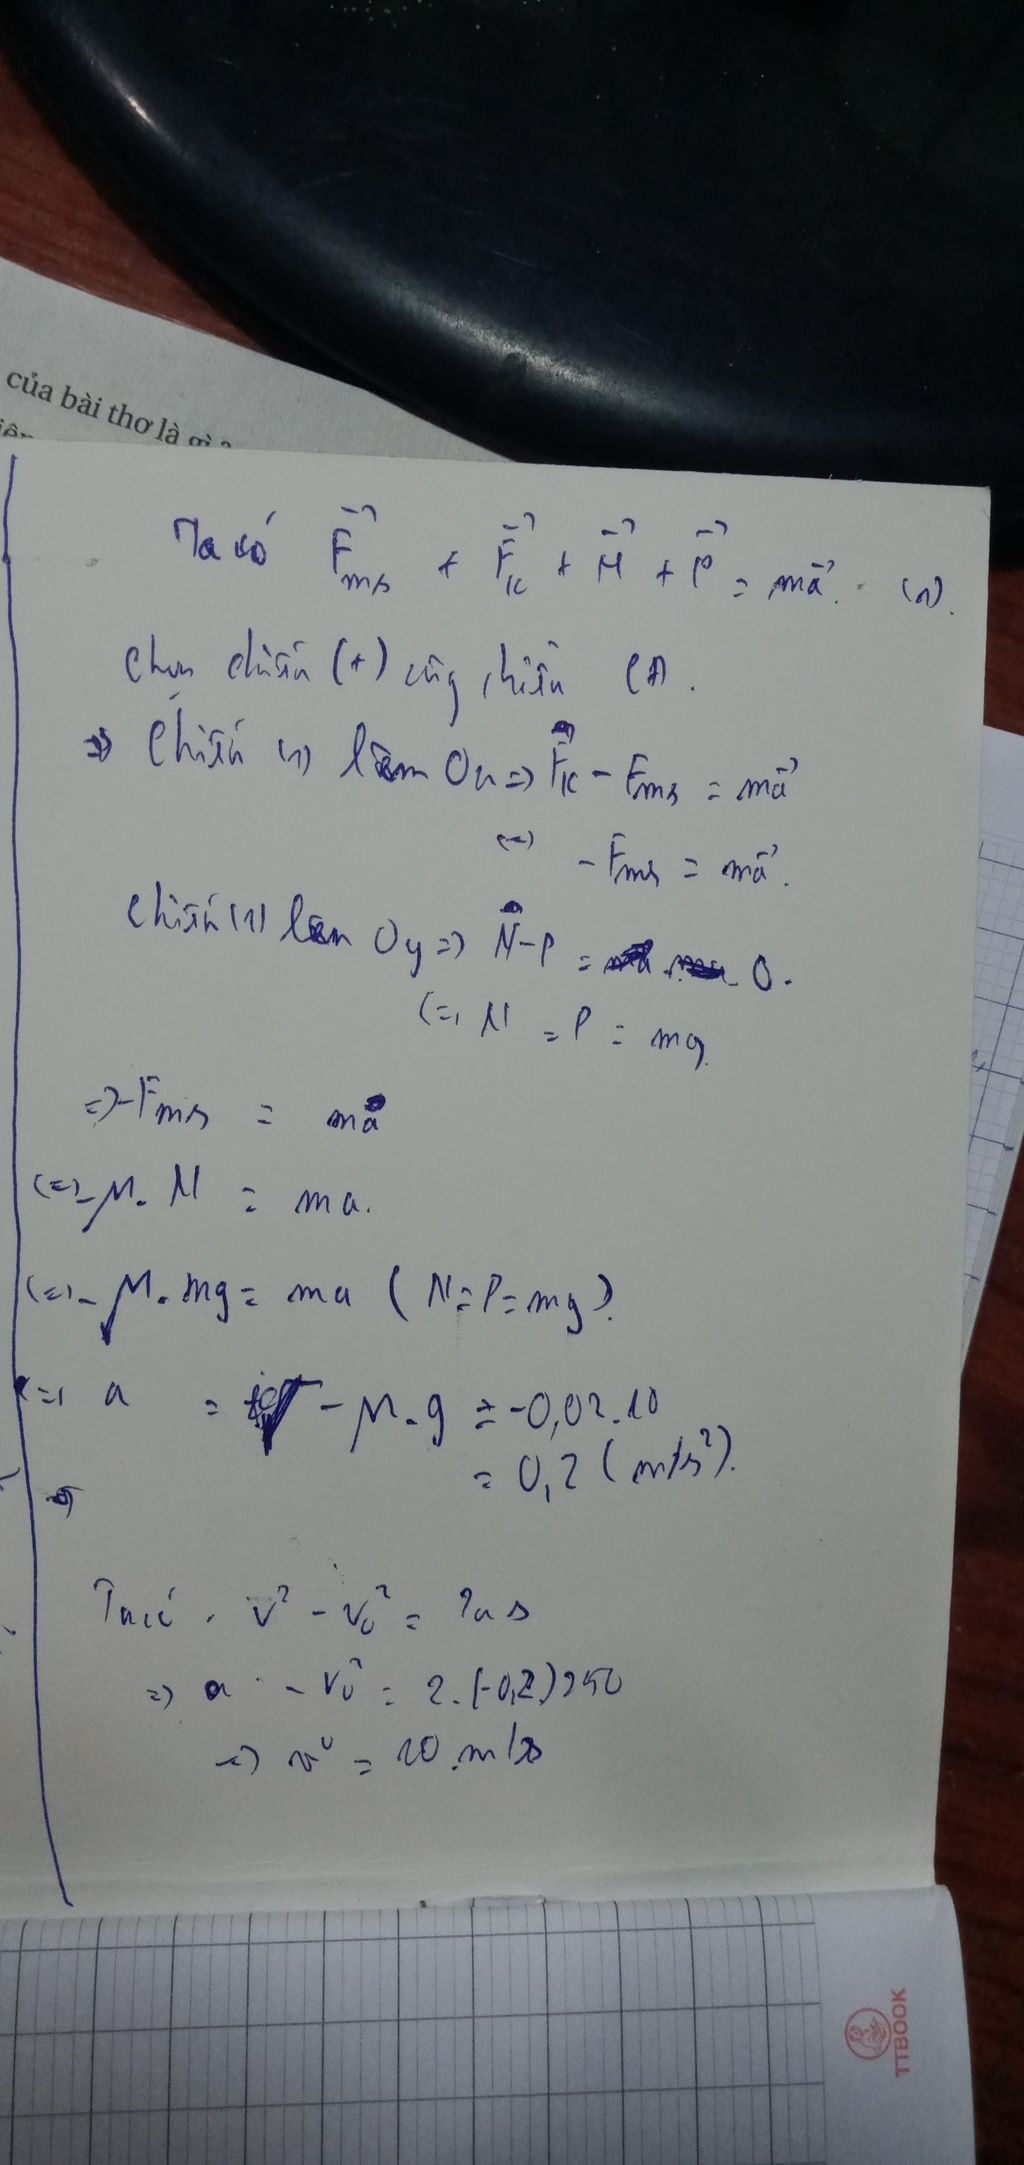 của bài thơ là gì?
Ta có F⃗ms + F⃗k + N⃗ + P⃗ = ma⃗. (1).
Chọn chiều (+) cùng chiều CĐ.
=> Chiếu (1) lên Ox => Fk - Fms = ma⃗
(=) - Fms = ma⃗.
Chiếu (1) lên Oy => N - P = 0.
(=) N = P = mg
=> -Fms = ma
(=) - μ. N = ma.
(=) - μ. mg = ma (N=P=mg).
(=) a = - μ. g = -0,02.10
= 0,2 (m/s²).
v² - v₀² = 2as
=> - v₀² = 2.(-0,2)250
=> = 10 m/s
TTBOOK